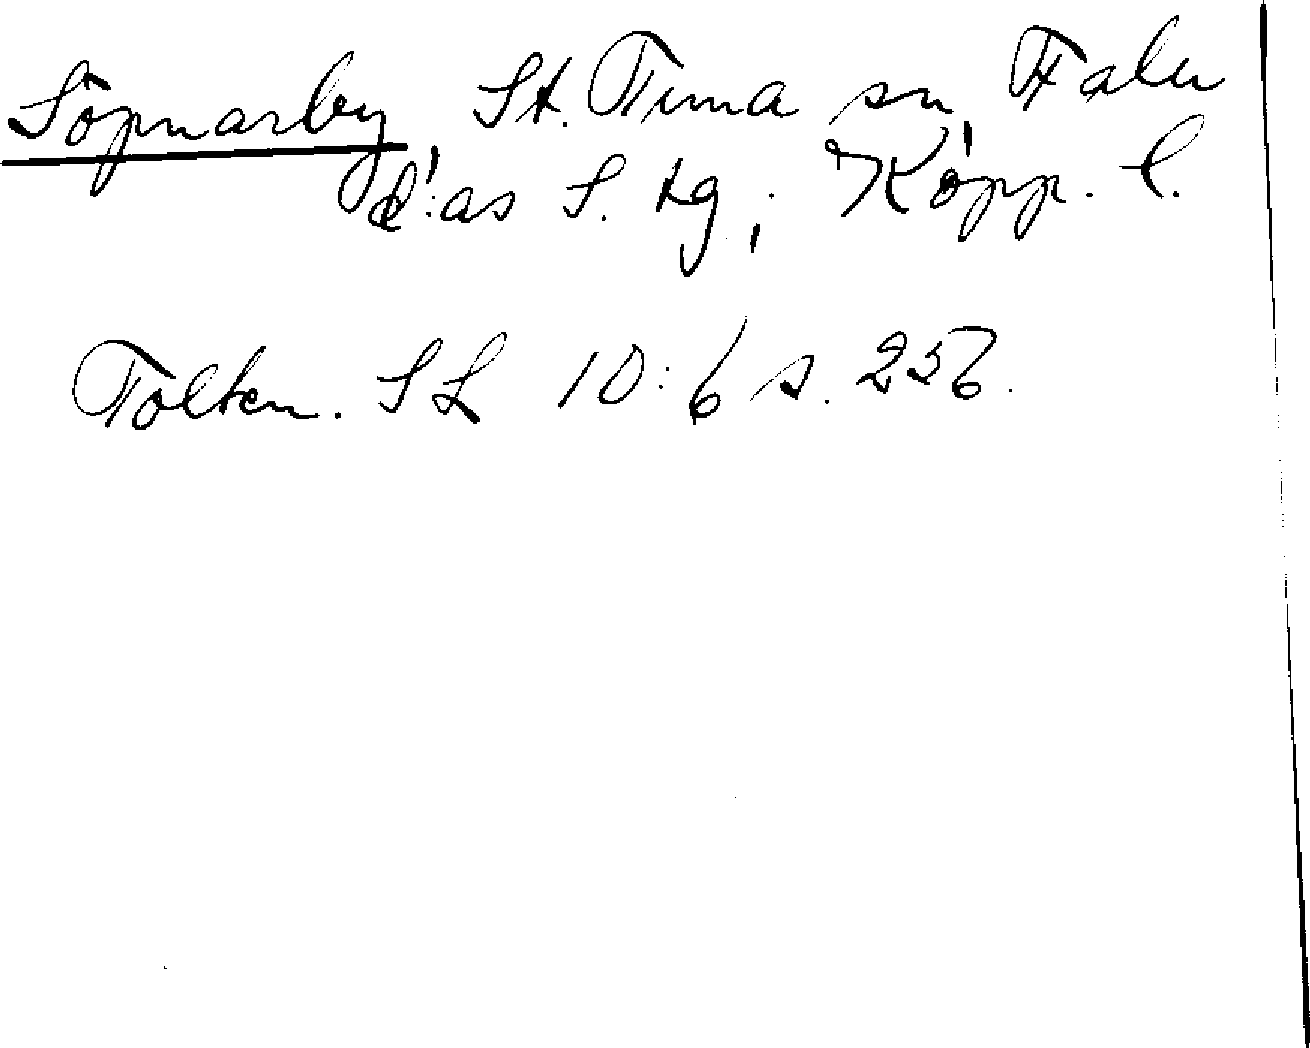 Söpnarby, St. Tuna sn, Falu
d:as S. tg, Kopp. l.
Tolkn. SL 10:6 s. 256.